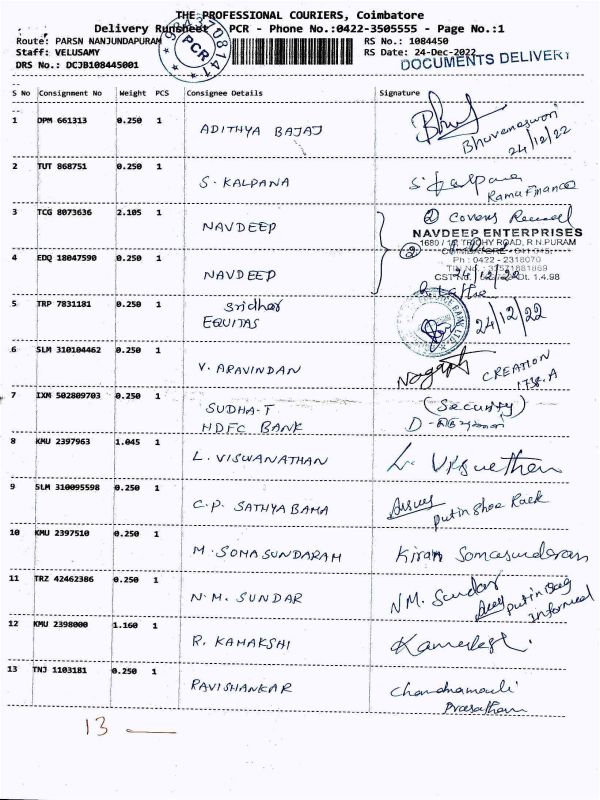 THE PROFESSIONAL COURIERS, Coimbatore
Delivery Runsheet PCR - Phone No.:0422-3505555 - Page No.:1
Route: PARSN NANJUNDAPURAM RS No.: 1084450
Staff: VELUSAMY RS Date: 24-Dec-2022
DRS No.: DCJB108445001
DOCUMENTS DELIVERY
PCR
S No Consignment No Weight PCS Consignee Details Signature
1 DPM 661313 0.250 1 ADITHYA BAJAJ
Bhuvaneswari
24/12/22
2 TUT 868751 0.250 1 S. KALPANA S. Kalpana
Rama Finance
3 TCG 8073636 2.105 1 NAVDEEP ② Covers Received
NAVDEEP ENTERPRISES
TRICHY ROAD, R.N.PURAM
Ph : 0422 - 2318070
4 EDQ 18047590 0.250 1 NAVDEEP ②
Dt. 1.4.98
5 TRP 7831181 0.250 1 Sridhar
EQUITAS 24/12/22
6 SLM 310104462 0.250 1 V. ARAVINDAN CREATION
7 IXM 502809703 0.250 1 SUDHA-T (Security)
HDFC BANK
8 KMU 2397963 1.045 1 L. VISWANATHAN
9 SLM 310095598 0.250 1 C.P. SATHYA BAMA
put in Shoe Rack
10 KMU 2397510 0.250 1 M. SOMASUNDARAM Kiran Somasundaram
11 TRZ 42462386 0.250 1 N.M. SUNDAR NM. Sundar
put in Bag
informed
12 KMU 2398000 1.160 1 R. KAMAKSHI
13 TNJ 1103181 0.250 1 RAVISHANKAR Chandramouli
Prasatham
13